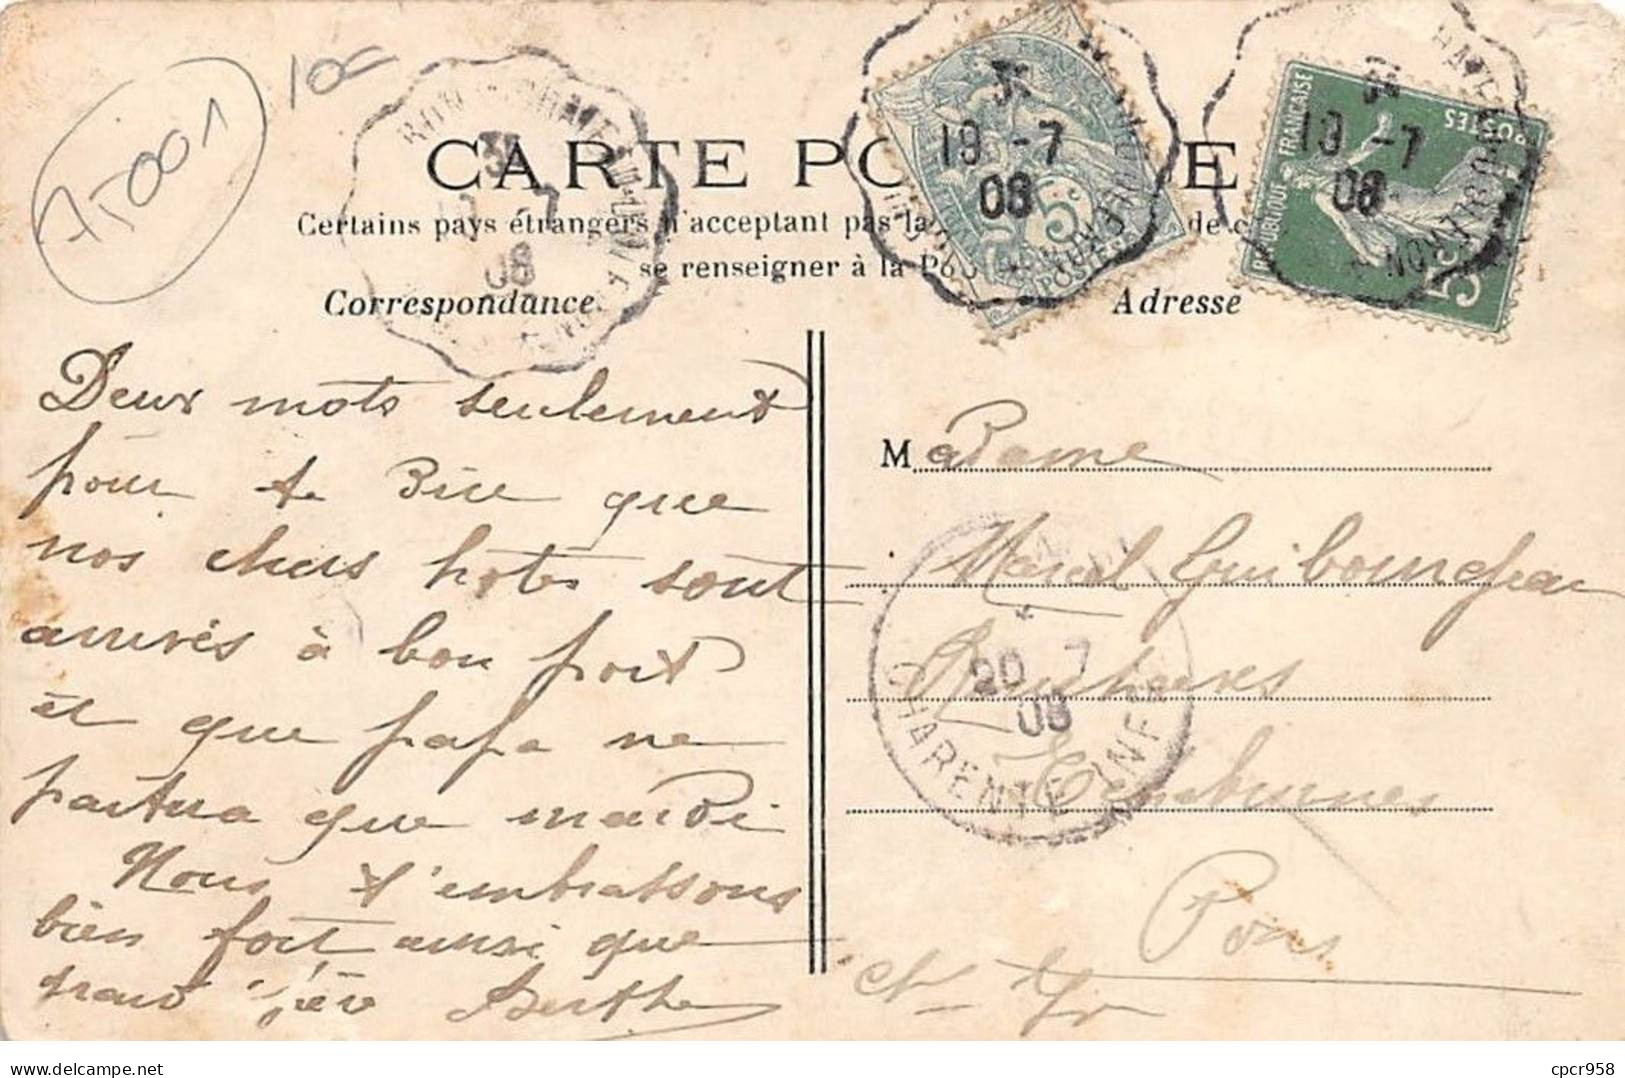 75001
10c
CARTE PO E
Certains pays étrangers n'acceptant pas la de c
se renseigner à la Po
Correspondance
Adresse
19 -7
08
POSTES
5c
19 -7
08
REPUBLIQUE FRANÇAISE
POSTES
5c
7
08
Deux mots seulement
pour te dire que
nos chers hotes sont
arrivés à bon port
et que papa ne
partira que mardi
Nous t'embrassons
bien fort ainsi que
Berthe
Madame
Marcel
Pons
Ch Inf
20 7
08
CHARENTE INF
cpcr958